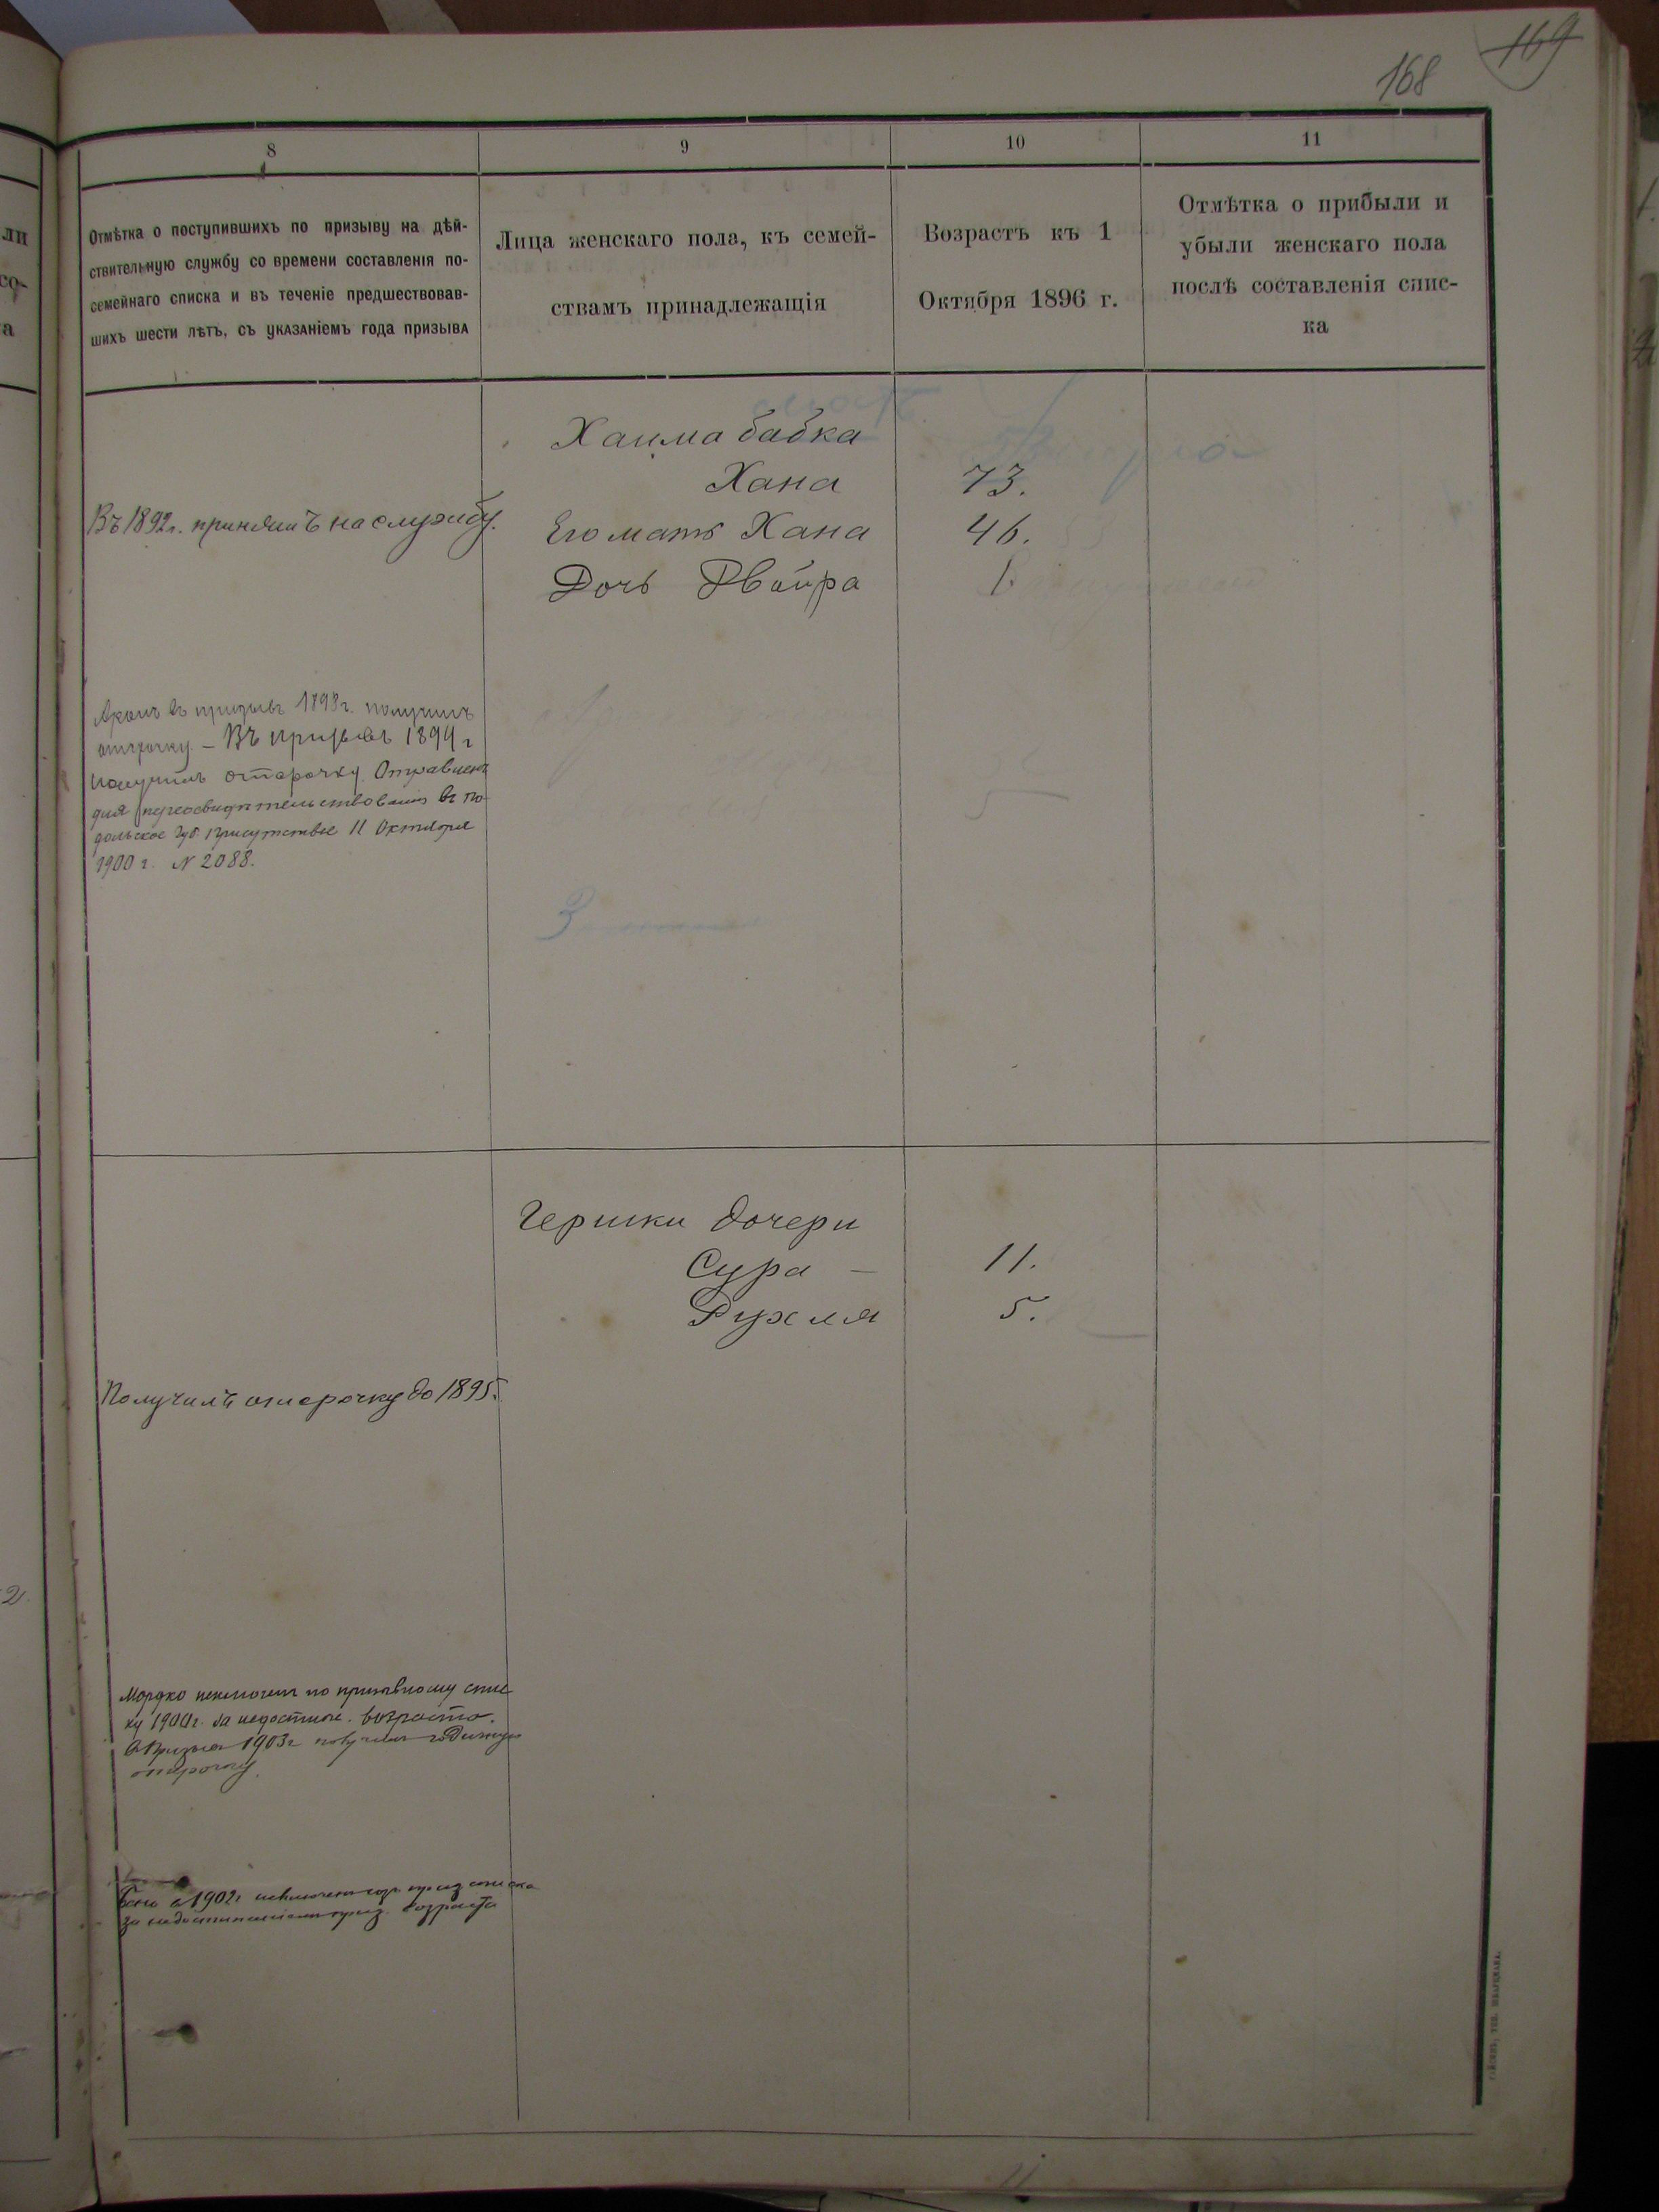 169
168
8
9
10
11
Отмѣтка о поступившихъ по призыву на дѣй-
ствительную службу со времени составленія по-
семейнаго списка и въ теченіе предшествовав-
шихъ шести лѣтъ, съ указаніемъ года призыва
Лица женскаго пола, къ семей-
ствамъ принадлежащія
Возрастъ къ 1
Октября 1896 г.
Отмѣтка о прибыли и
убыли женскаго пола
послѣ составленія спис-
ка
Хаима бабка
Хана 73.
Въ 1892 г. принятъ на службу.
Его мать Хана 46.
Дочь Двойра 1.
въ призывъ 1898 г. получилъ
отсрочку – Въ призывъ 1899 г
получилъ отсрочку. Отправленъ
для переосвидѣтельствованія въ По-
дольское Губ. присутствіе 11 Октября
1900 г. N 2088.
Гершки дочери
Сура – 11.
Рухля 5.
Получилъ отсрочку до 1895 г.
Мордко исключенъ по призывному спис
ку 1900 г. за недостиж. возраста.
въ призывъ 1903 г получилъ годичную
отсрочку.
1902 г исключенъ изъ приз списка
за недостиженіемъ приз. возраста